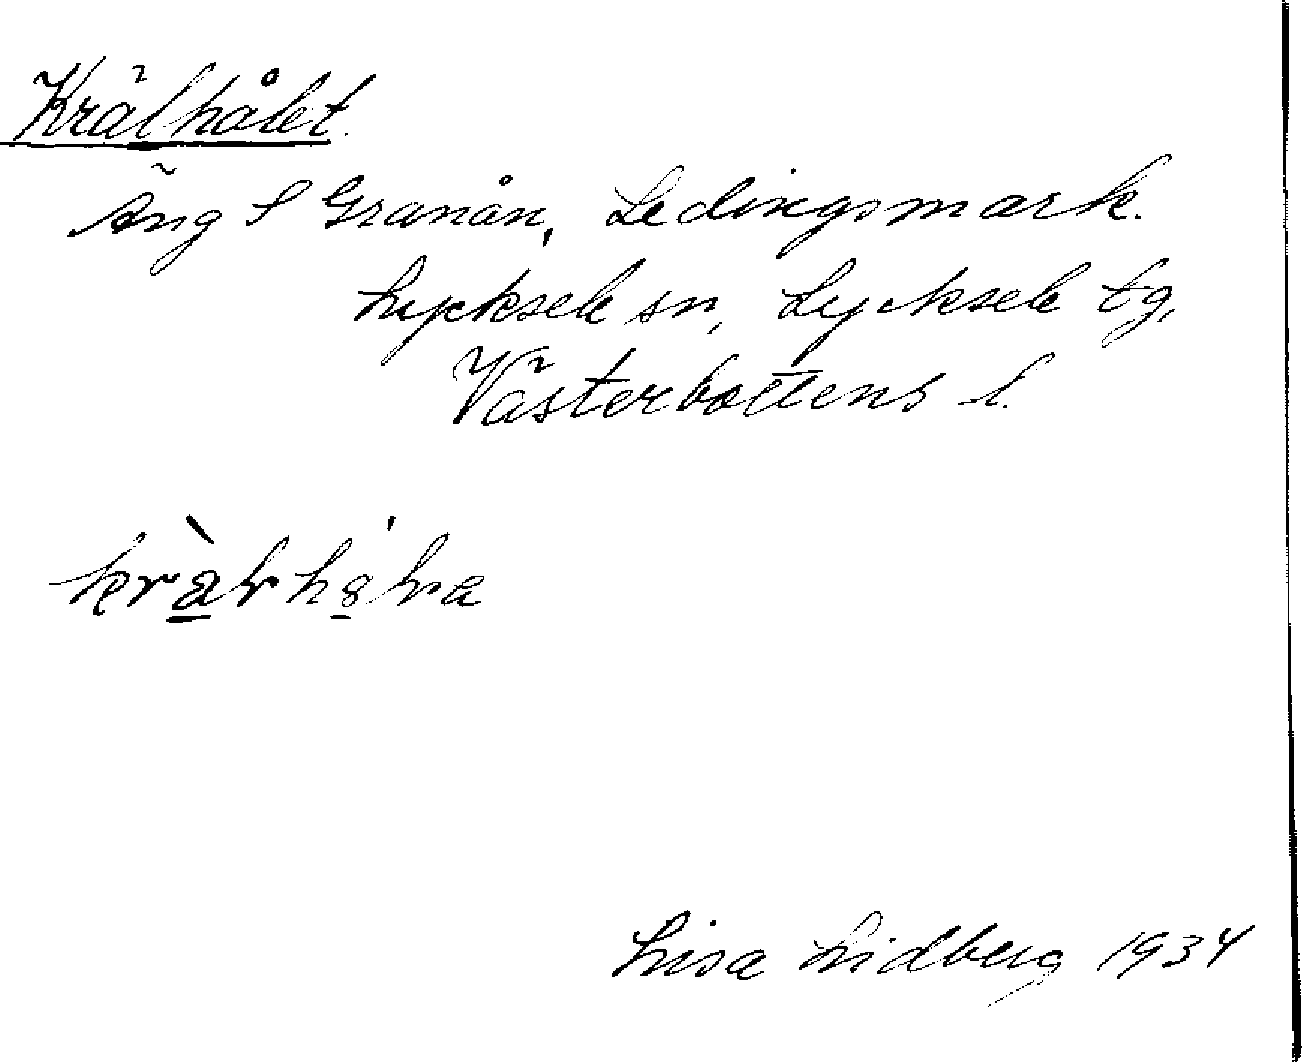 Krälhålet.
Äng S Granån, Ledingsmark.
Lycksele sn, Lycksele tg,
Västerbottens l.
Lisa Lidberg 1934